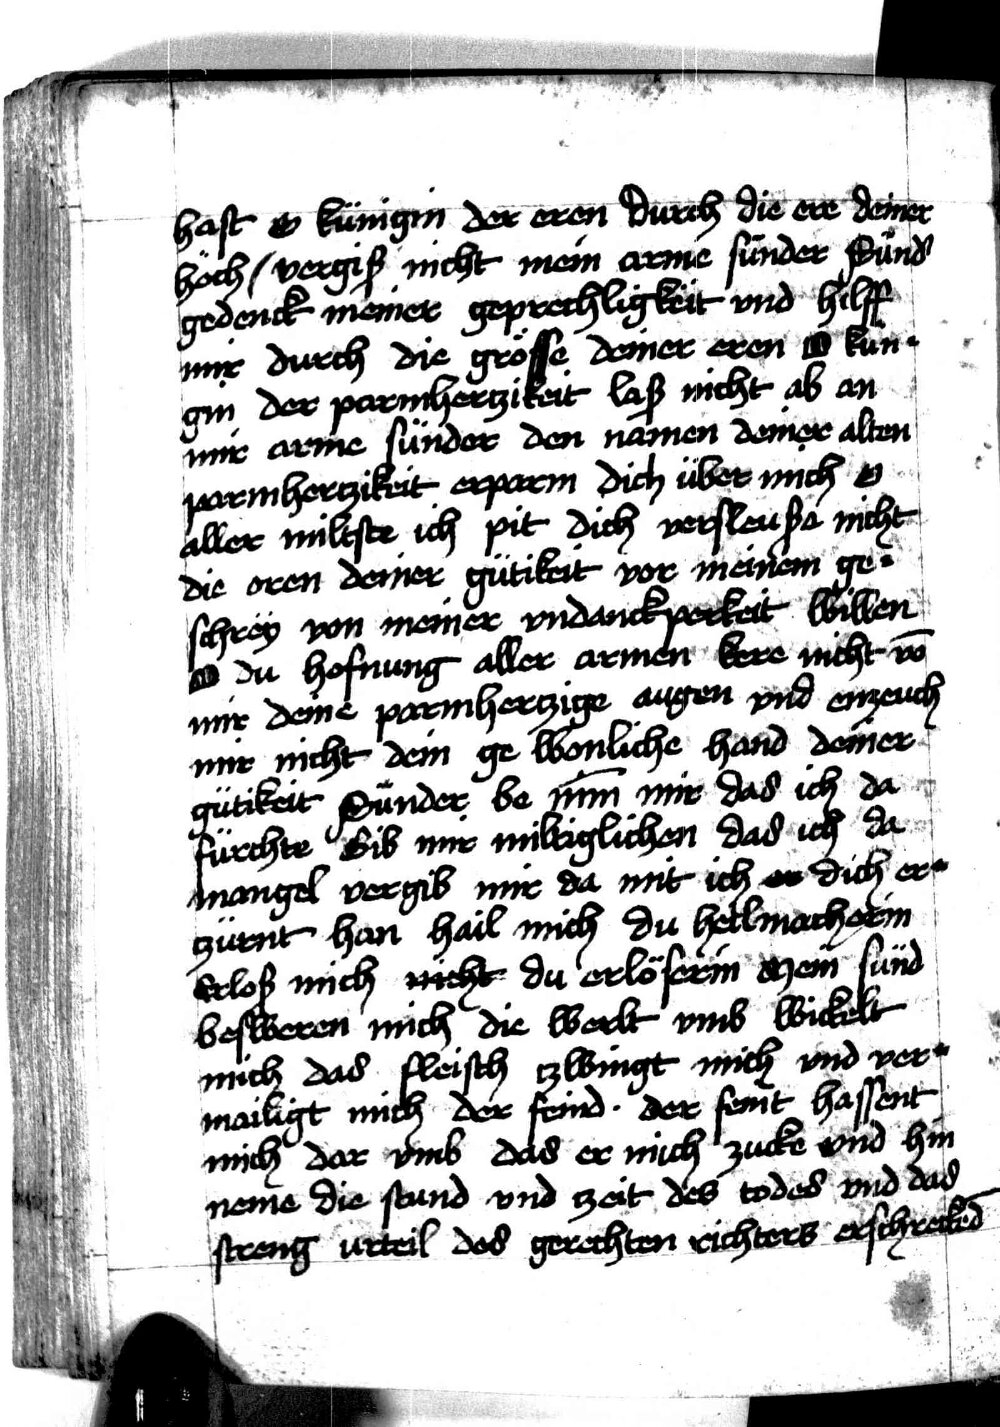 hast O künigin der eren Durch die ere deiner
höch / vergiß nicht mein arme sünder Sünd
gedenck meiner geprechligkeit vnd hilff
mir durch die grösse deiner eren O kün-
gin der parmhertzikeit laß nicht ab an
mir arme sünder den namen deiner alten
parmhertzikeit erparm dich über mich O
aller miltste ich pit dich versleuße nicht
die oren deiner gütikeit vor meinem ge-
schrey von meiner vndanckperkeit willen
O du hofnung aller armen kere nicht vō
mir deine parmhertzige augen vnd enzeuch
mir nicht dein ge wonliche hand deiner
gütikeit Sünder be nīm mir das ich da
fürchte Gib mir miltiglichen das ich da
mangel vergib mir da mit ich dich er-
tzürnt han hail mich du heilmacherin
Erloß mich nicht du erlöserin Mein sünd
besweren mich die werlt vmb wickelt
mich das fleisch tzwingt mich vnd ver-
mailigt mich der feind . der feint hassent
mich dar vmb das er mich zucke vnd hin
neme die stund vnd tzeit des todes vnd das
streng urteil des gerechten richters erschrecked